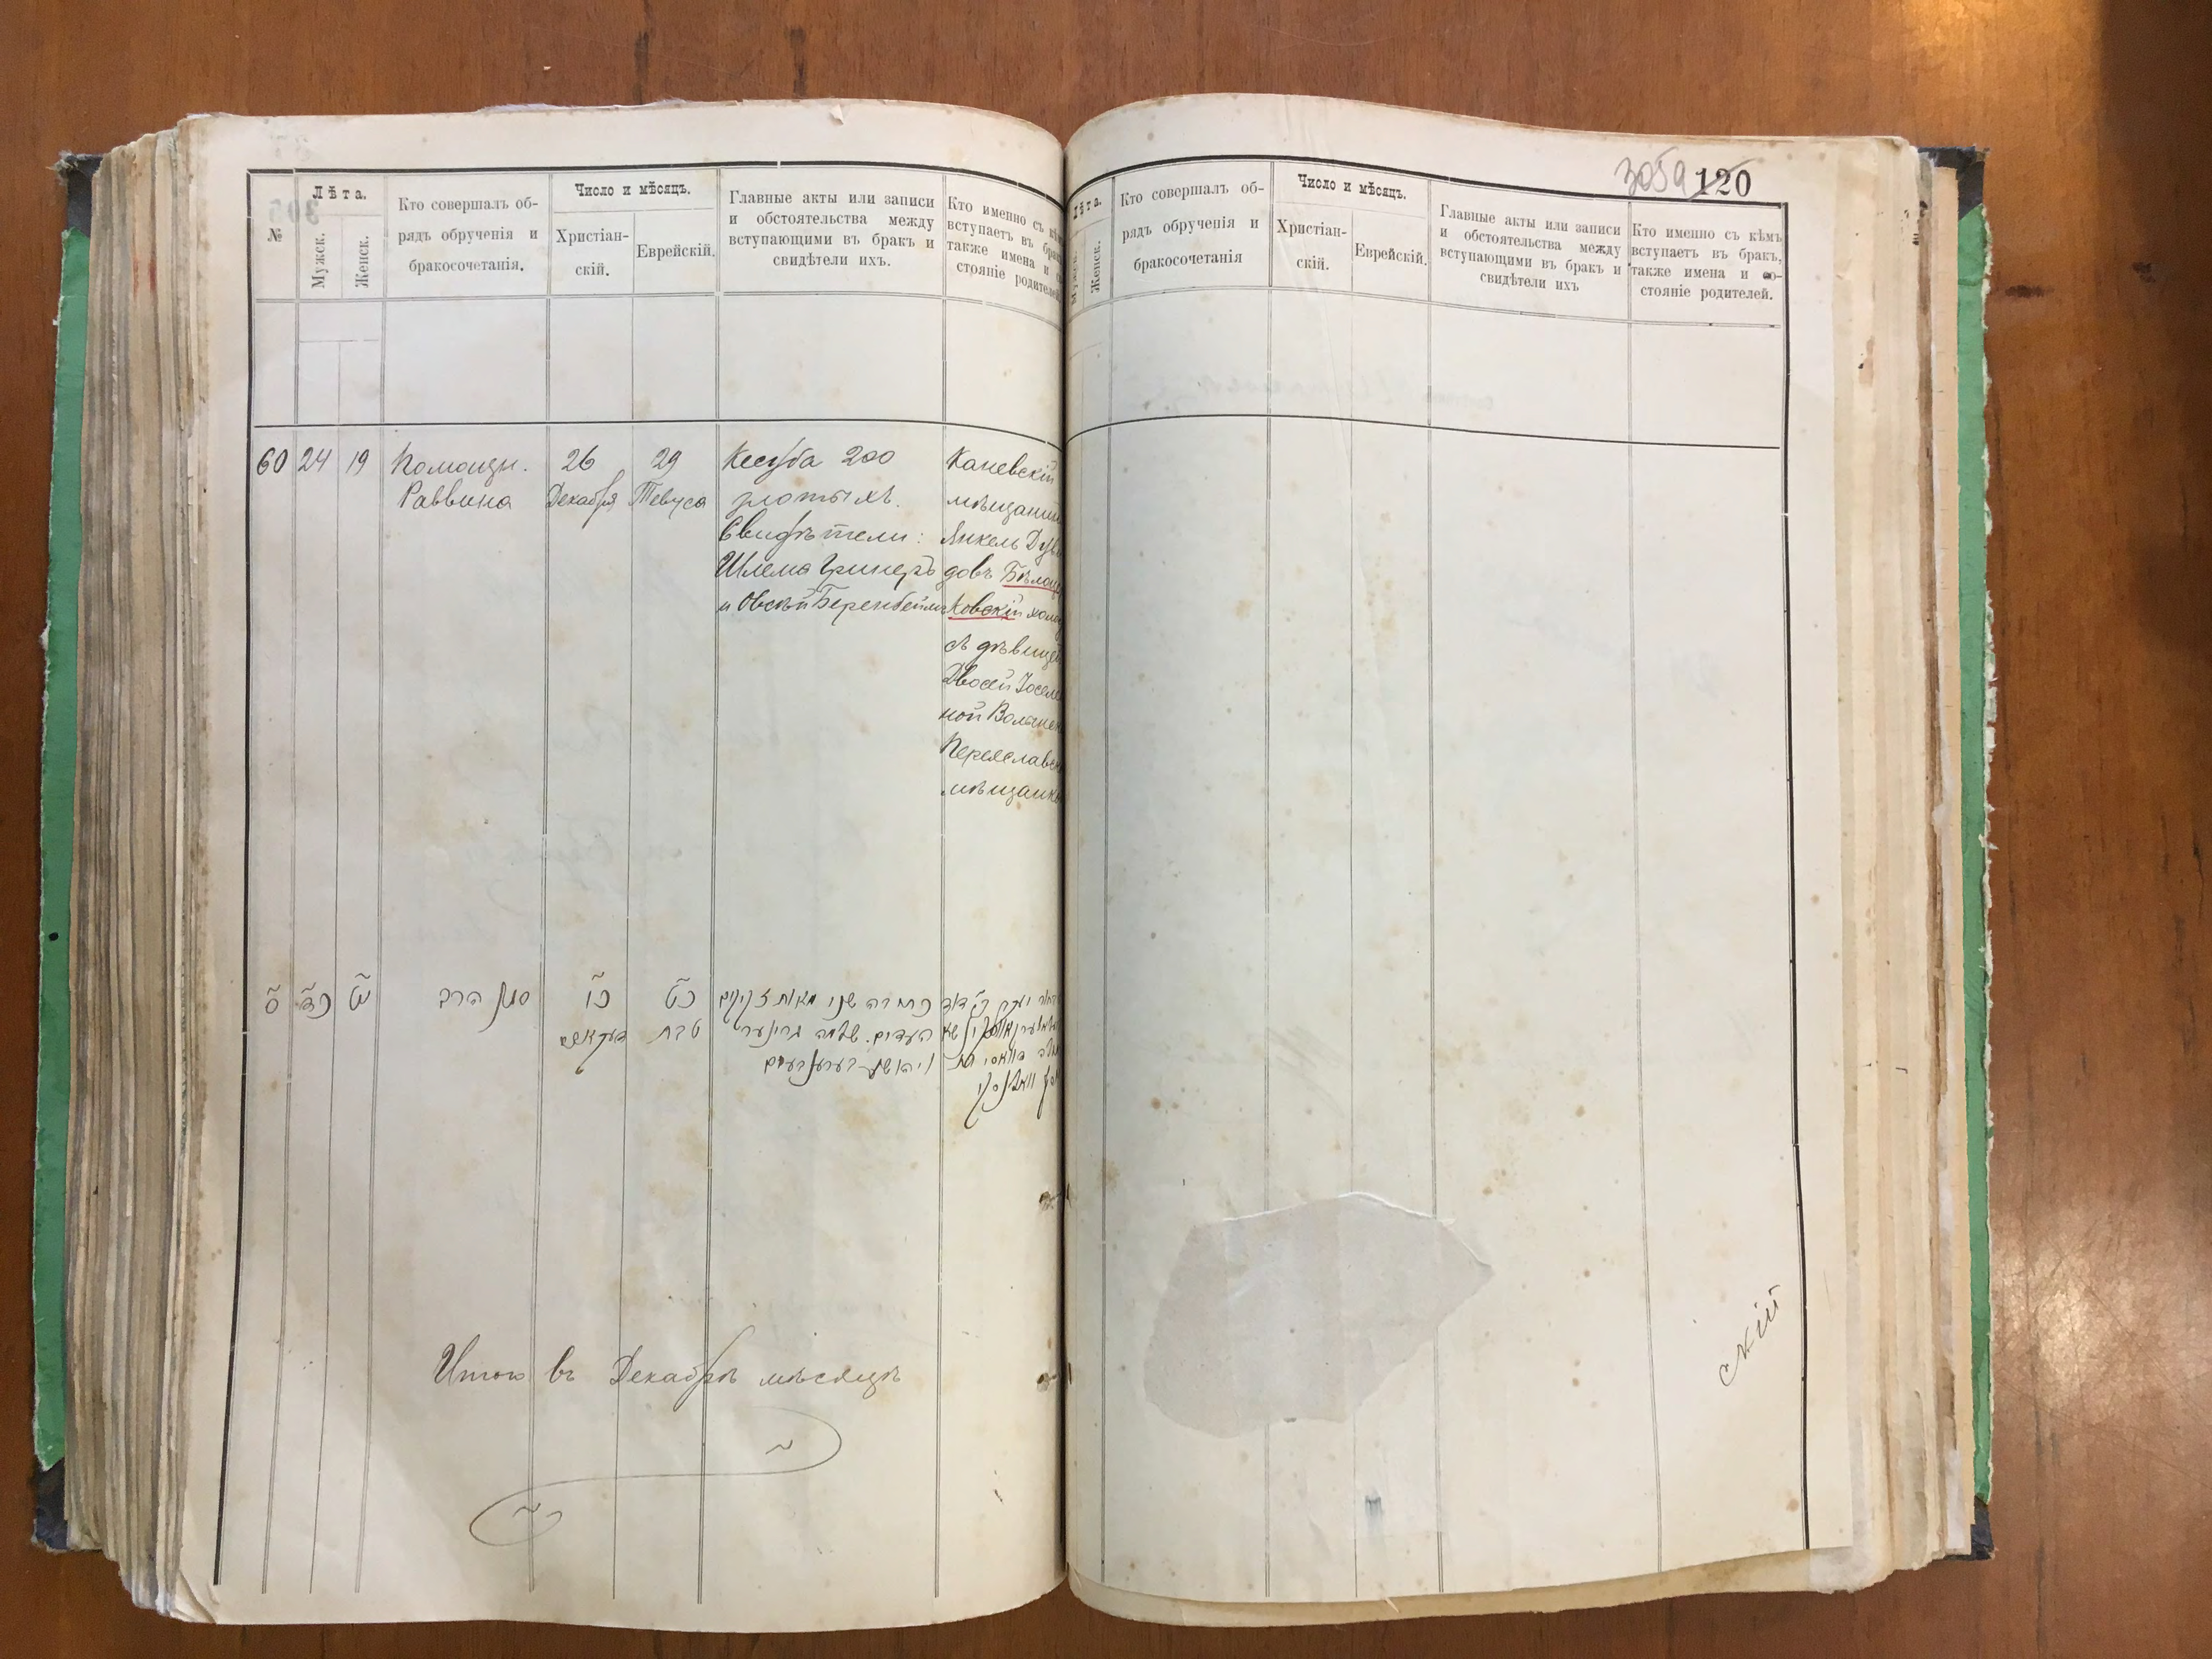 №
Лѣта.
Мужск.
Женск.
Кто совершалъ об-
рядъ обрученія и
бракосочетанія.
Число и мѣсяцъ.
Христіан-
скій.
Еврейскій.
Главные акты или записи
и обстоятельства между
вступающими въ бракъ и
свидѣтели ихъ.
Кто именно съ кѣмъ
вступаетъ въ бракъ
также имена и со
стояніе родителей
60
24
19
Помощн.
Раввина
26
Декабря
29
Тевуса
Кесуба 200
злотыхъ.
Свидѣтели:
Шлема Гринеръ
и Овсѣй Беренбейм
Каневскій
мѣщанин
Янкель Дув
довъ Бѣлоц
ковскій холос
съ дѣвицей
Двосей Іоселе
ной Волянск
Переяславск
мѣщанк
ס
כד
יט
סגן הרב
כו
דעקאבר
כט
טבת
כתובה שני מאות זקוקים
העדים. שלמה גרינער
ויהושע בערענבעים
Итого въ Декабрѣ мѣсяцѣ
3059
120
Лѣта.
Мужск.
Женск.
Кто совершалъ об-
рядъ обрученія и
бракосочетанія
Число и мѣсяцъ.
Христіан-
скій.
Еврейскій.
Главные акты или записи
и обстоятельства между
вступающими въ бракъ и
свидѣтели ихъ
Кто именно съ кѣмъ
вступаетъ въ бракъ,
также имена и со-
стояніе родителей.
скій